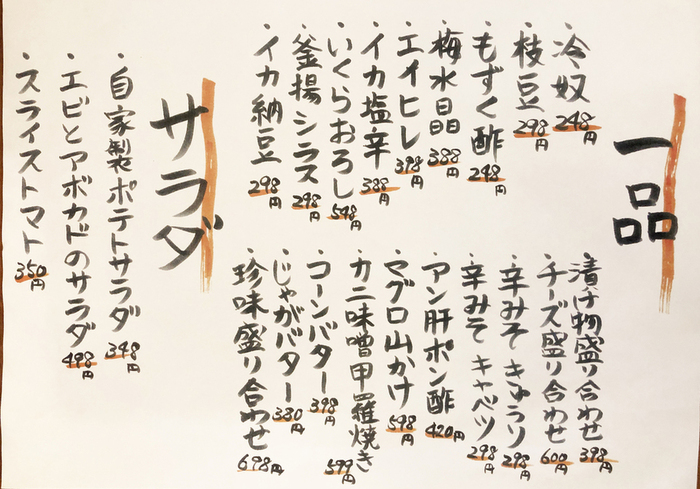 一品
・冷奴 248円
・枝豆 298円
・もずく酢 248円
・梅水晶 388円
・エイヒレ 398円
・イカ塩辛 388円
・いくらおろし 548円
・釜揚シラス 298円
・イカ納豆 298円
・漬け物盛り合わせ 398円
・チーズ盛り合わせ 600円
・辛みそきゅうり 298円
・辛みそキャベツ 298円
・アン肝ポン酢 420円
・マグロ山かけ 598円
・カニ味噌甲羅焼き 599円
・コーンバター 398円
・じゃがバター 380円
・珍味盛り合わせ 698円
サラダ
・自家製ポテトサラダ 348円
・エビとアボカドのサラダ 498円
・スライストマト 350円